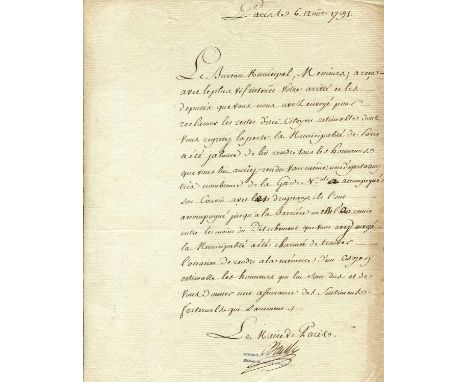 Paris le 6. Aoust 1791.
Le Bureau Municipal, Messieurs, a reçu
avec le plus vif intérêt votre arrêté et les
députés que vous nous avez envoyé pour
réclamer les restes d'un Citoyen estimable dont
vous regrettez la perte. la Municipalité de Paris
a été jalouse de lui rendre tous les honneurs
que vous lui auriez rendu vous même; une députation
très nombreuse de la Garde N.ale a accompagné
son Convoi avec les drapeaux; ils l'ont
accompagné jusqu'à la Barrière et l'a remis
entre les mains du Détachement que vous avez envoyé
la Municipalité a été charmée de trouver
l'occasion de rendre a la mémoire d'un Citoyen
estimable les honneurs qui lui sont dus et de
vous donner une assurance des Sentimens
fraternels qui l'animent.
Le Maire de Paris.
Bailly